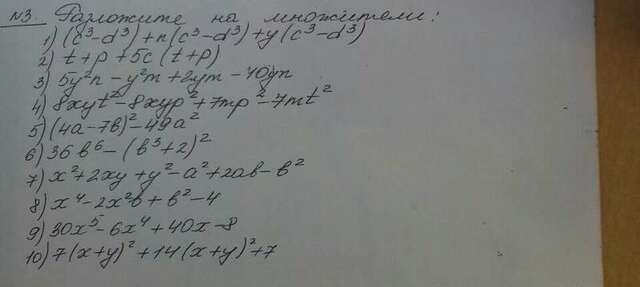 №3. Разложите на множители:
1) (c³-d³)+n(c³-d³)+y(c³-d³)
2) t+p+5c(t+p)
3) 5y²n-y²m+2ym-10yn
4) 8xyt²-8xyp²+7mp²-7mt²
5) (4a-7b)²-49a²
6) 36b⁶-(b³+2)²
7) x²+2xy+y²-a²+2ab-b²
8) x⁴-2x²b+b²-4
9) 30x⁵-6x⁴+40x-8
10) 7(x+y)²+14(x+y)²+7